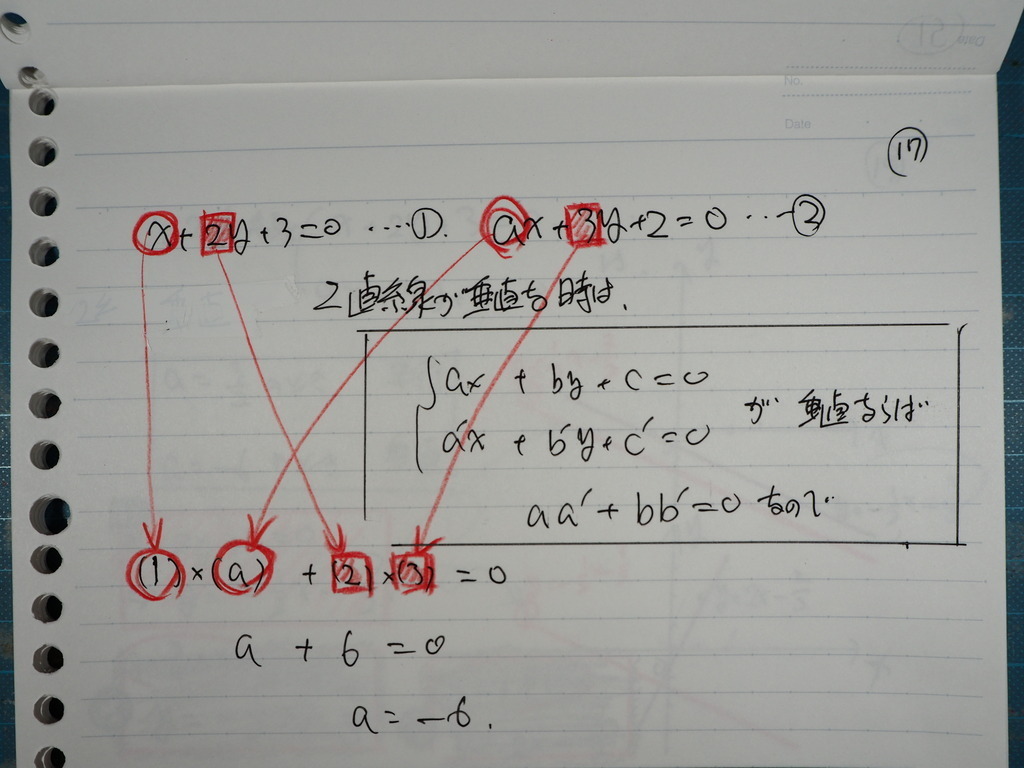 No.
Date
⑰
x+2y+3=0 ‥‥① . ax+3y+2=0 ‥‥②
2直線が垂直な時は、
{ax + by + c = 0
a'x + b'y + c' = 0 が 垂直ならば
aa' + bb' = 0 なので
(1)×(a) +(2)×(3) = 0
a + 6 = 0
a = -6 .